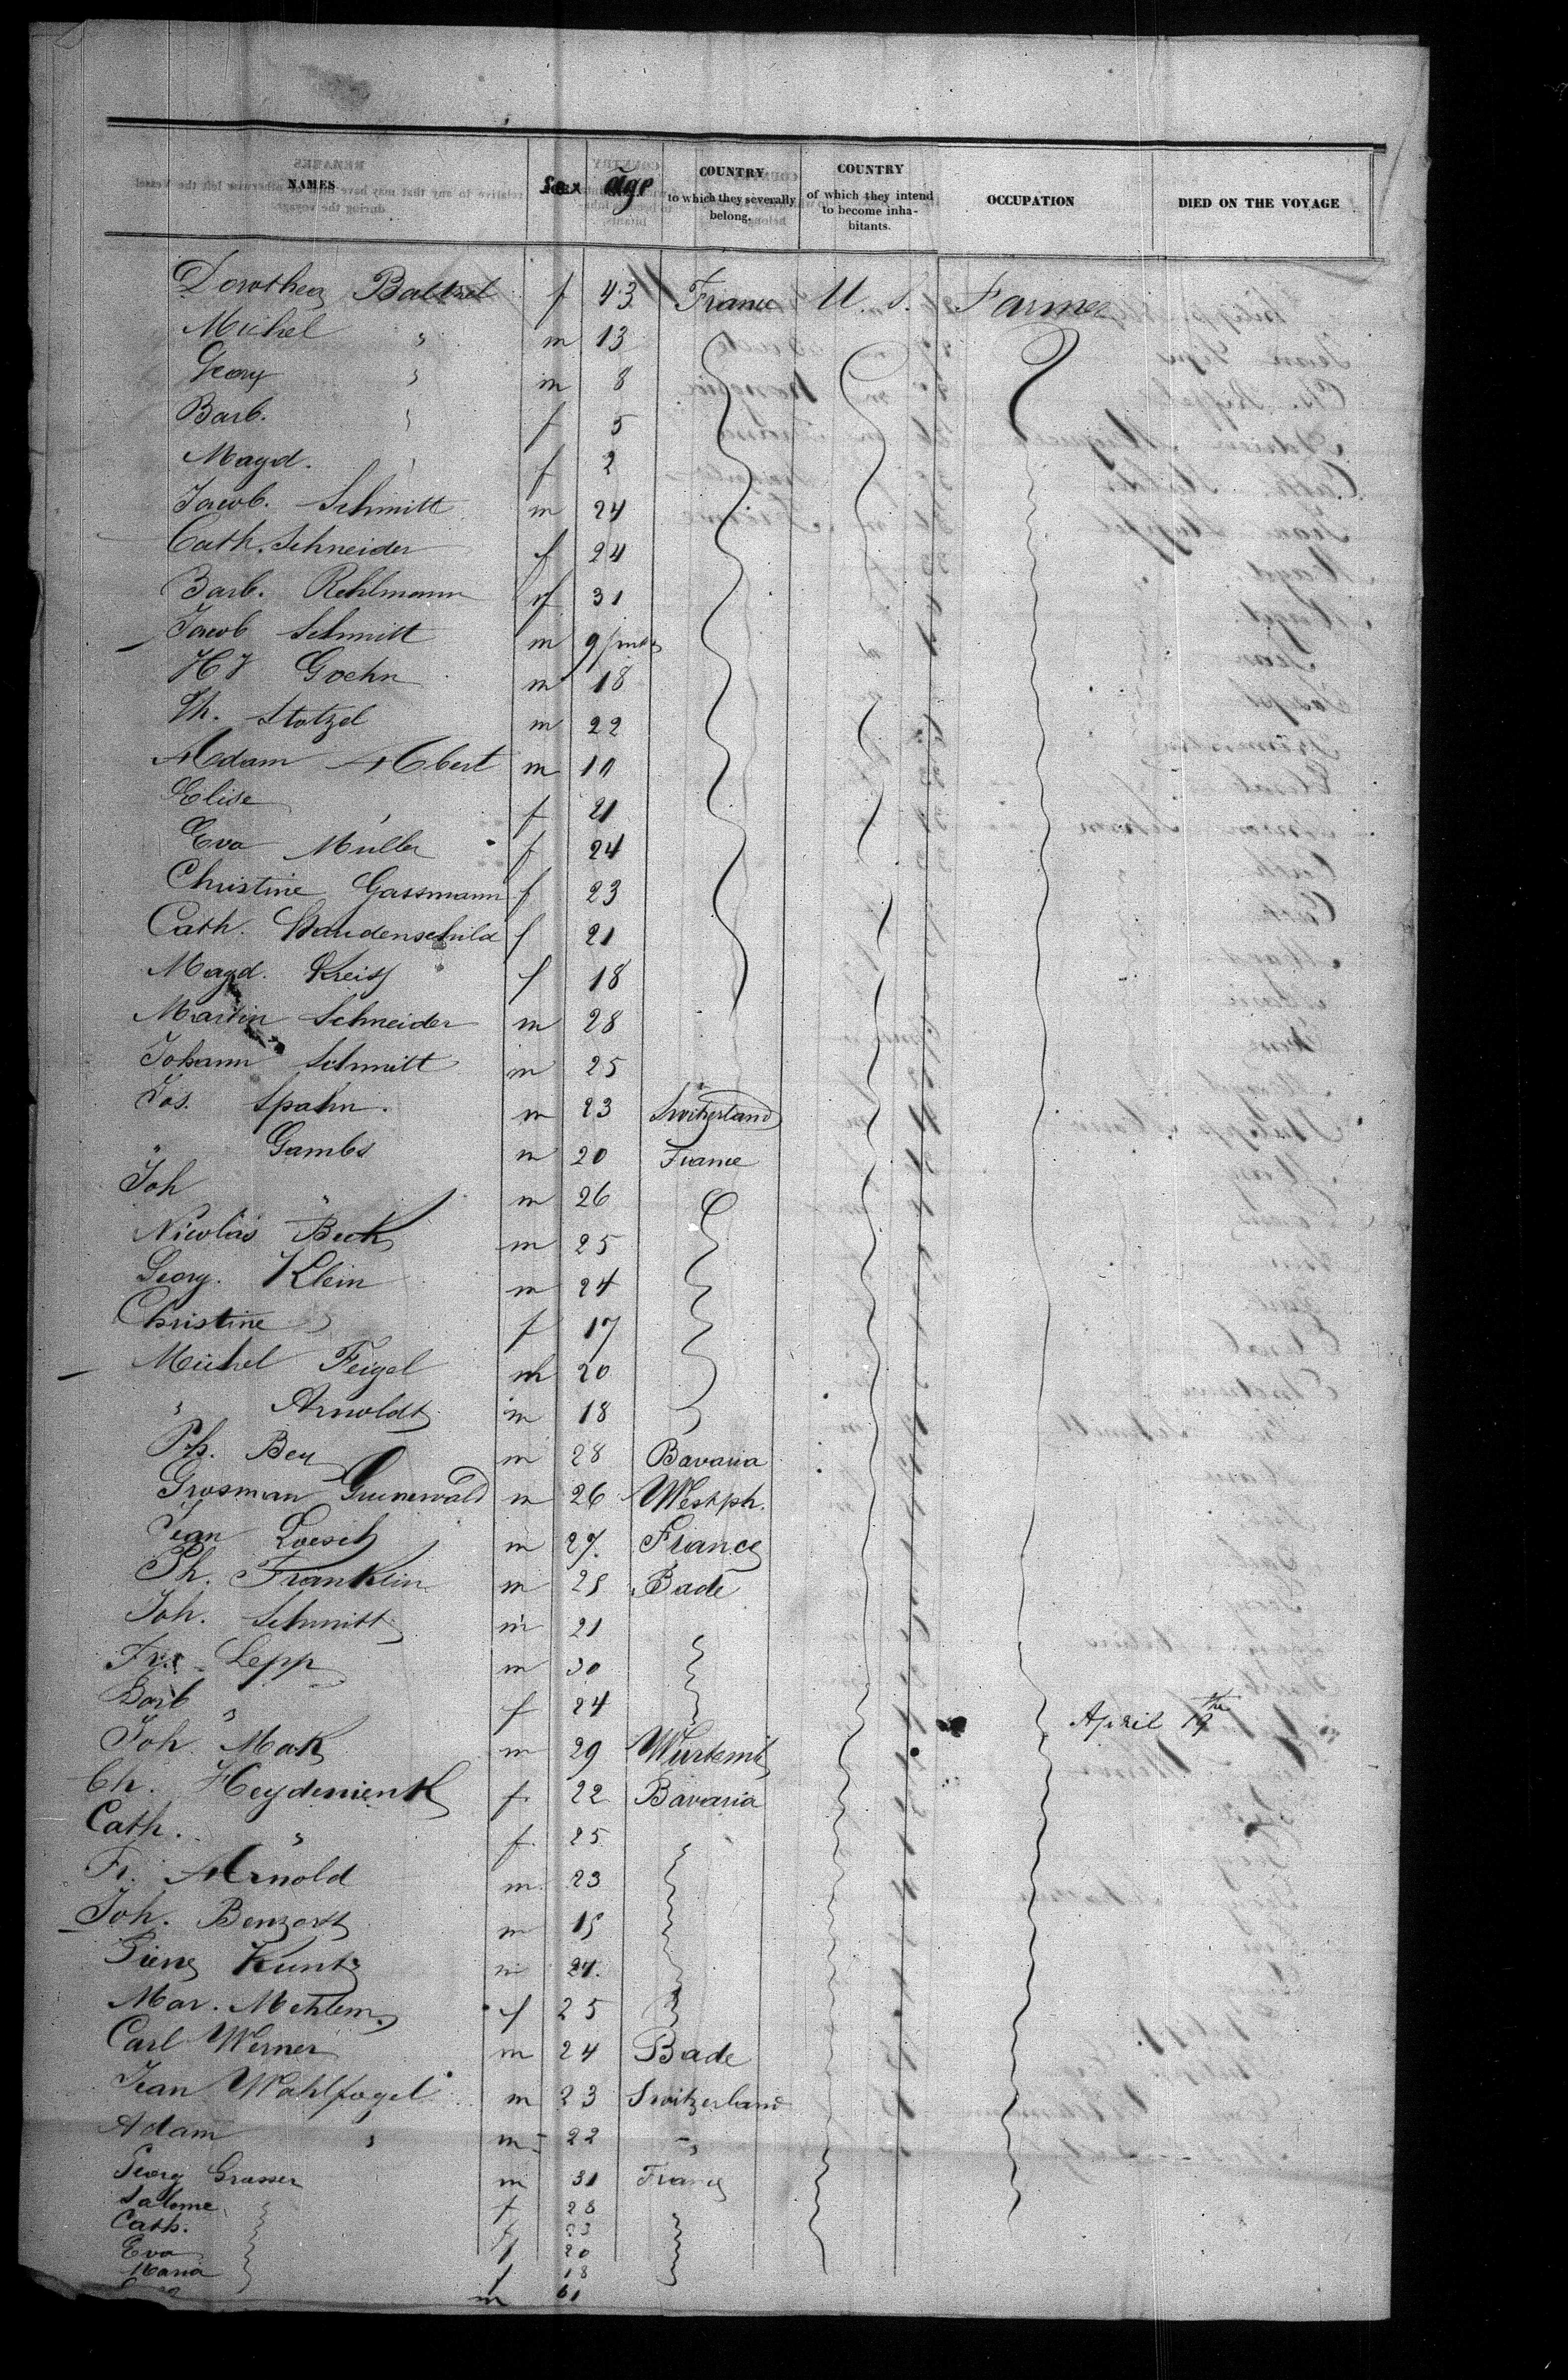 NAMES sex age COUNTRY to which they severally belong. COUNTRY of which they intend to become inhabitants. OCCUPATION DIED ON THE VOYAGE
Dorothea Baltzel f 43 France U. S. Farmer
Michel " m 13
Georg " m 8
Barb. " f 5
Magd. " f 2
Jacob. Schmitt m 24
Cath. Schneider f 24
Barb. Rehlmann f 31
Jacob Schmitt m 9/mos
HJ Goehn m 18
Th. Stotzel m 22
Adam Albert m 10
Elise " f 21
Eva Muller f 24
Christine Gassmann f 23
Cath. Haudenschild f 21
Magd. Kreiss f 18
Martin Schneider m 28
Johann Schmitt m 25
Jos. Spahn. m 23 Switzerland
" Gambs m 20 France
Joh " m 26
Nicolas Beck m 25
Georg. Klein m 24
Christine " f 17
Michel Feigel m 20
" Arnoldt m 18
Ph. Bey m 28 Bavaria
Grosman Grunewald m 26 Westph.
Jean Loesch m 27. France
Ph. Franklin m 28 Bade
Joh. Schmitt m 21
Frs. Lepp m 30
Barb " f 24 April 19th
Joh. Mak m 29 Wurtemb
Ch. Heydenienk f. 22 Bavaria
Cath. " f. 25
Fr. Arnold m. 23
Joh. Benzordt m 15
Pierre Kuntz m 24.
Mar. Mehlem f 25
Carl Werner m 24 Bade
Jean Wohlfogel m 23 Switzerland
Adam " m 22 "
Georg Grasser m 31 France
Salome f 28
Cath. f 23
Eva f 20
Maria f 18
m 61